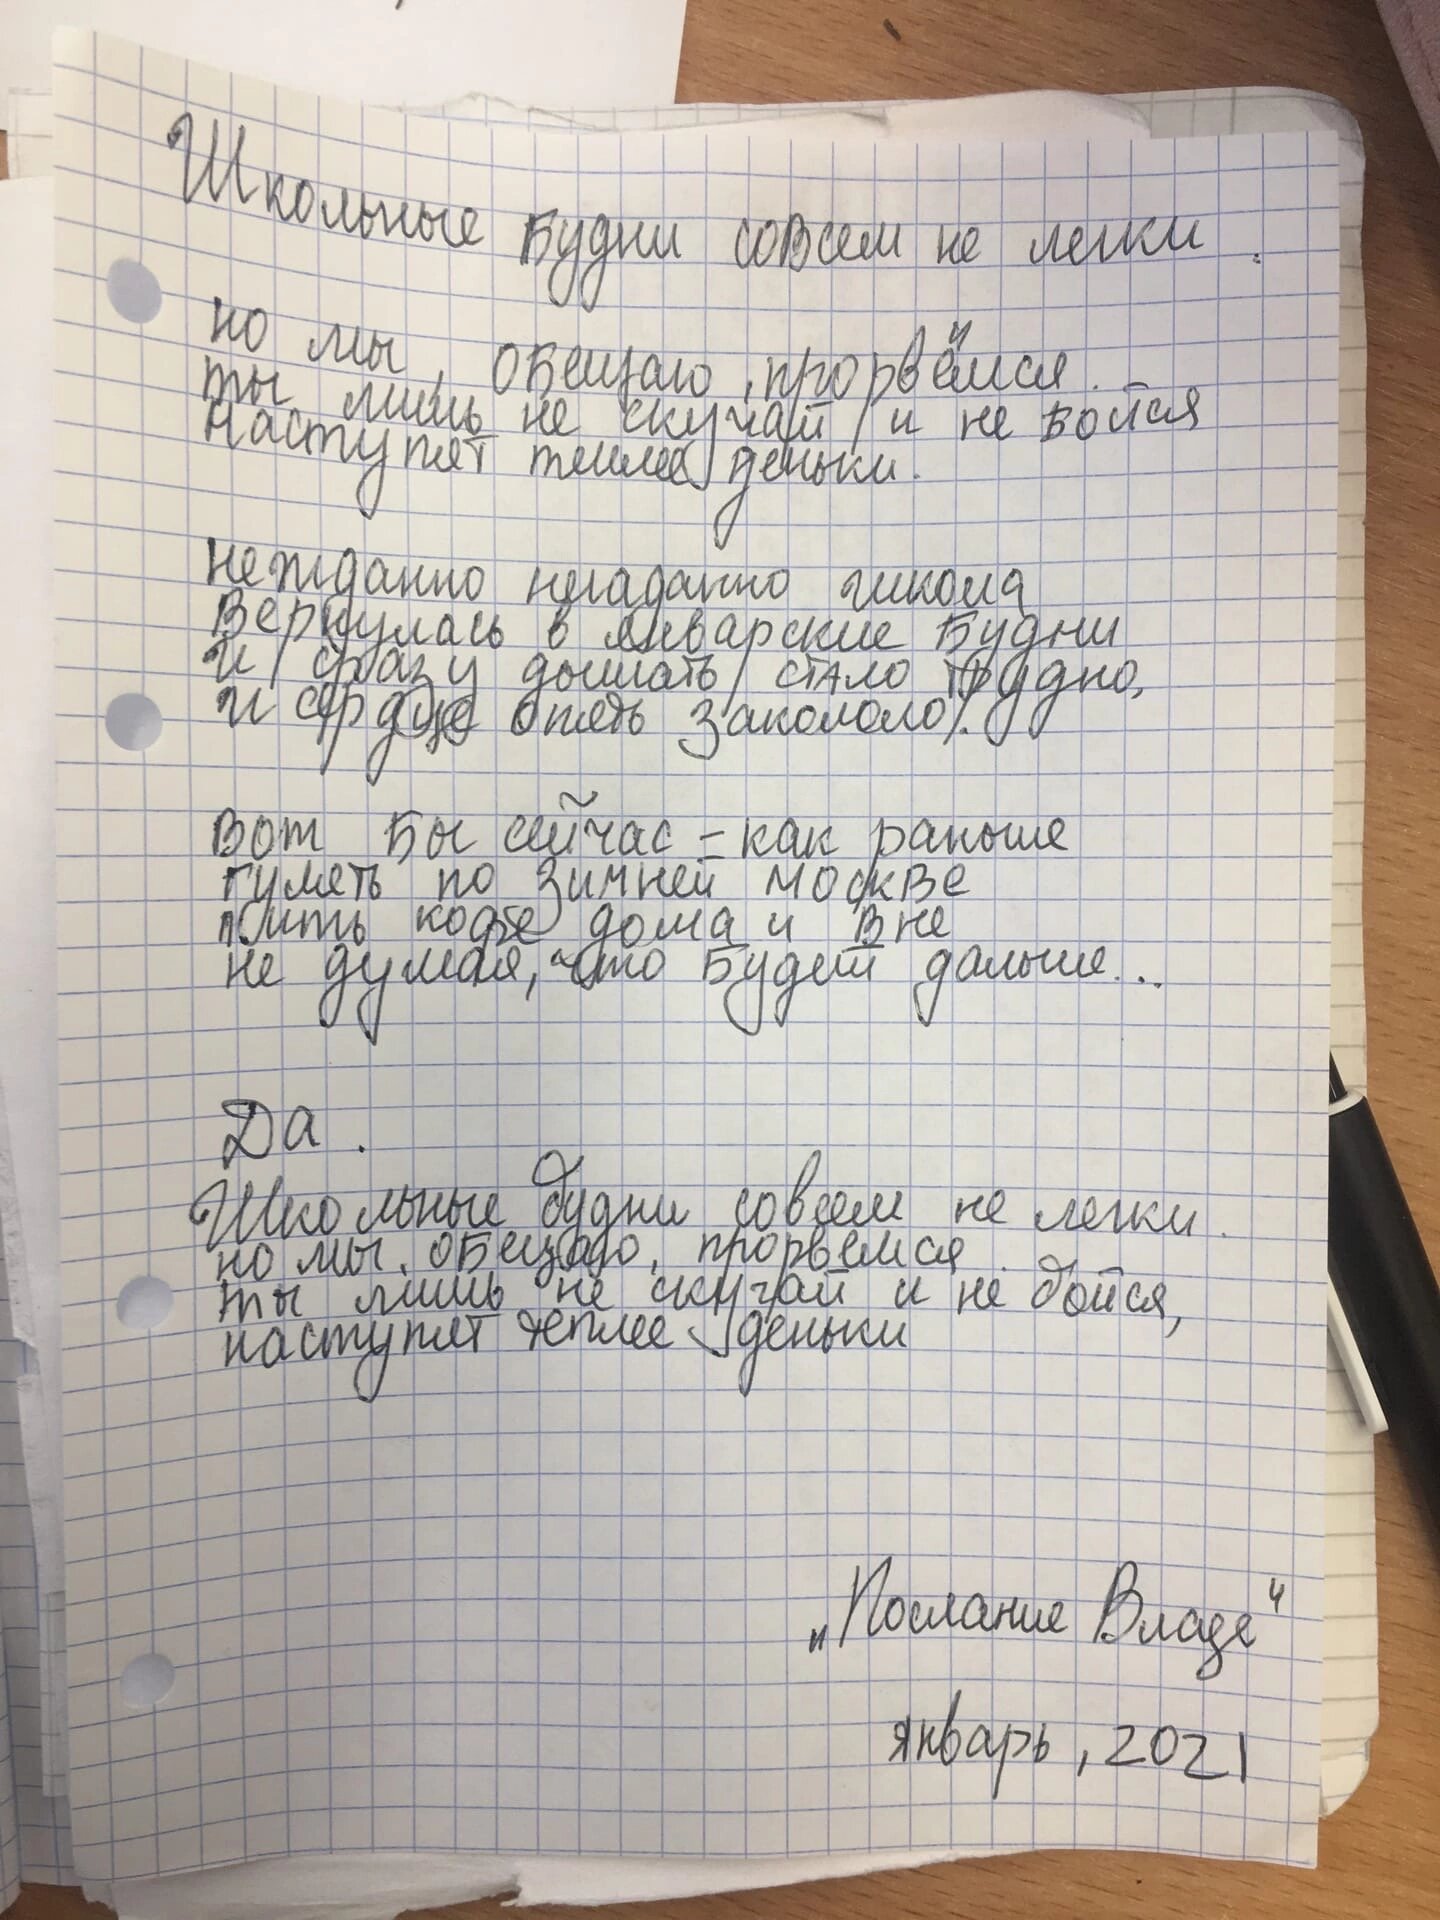 Школьные будни совсем не легки.
но мы, обещаю, прорвёмся.
ты лишь не скучай и не бойся
наступят теплее деньки.
нежданно негаданно школа
вернулась в январские будни
и сразу дышать стало трудно,
и сердце опять закололо.
вот бы сейчас - как раньше
гулять по зимней москве
пить кофе дома и вне
не думая, что будет дальше...
Да.
Школьные будни совсем не легки.
но мы, обещаю, прорвемся.
ты лишь не скучай и не бойся,
наступят теплее деньки
„Послание Владе"
январь, 2021